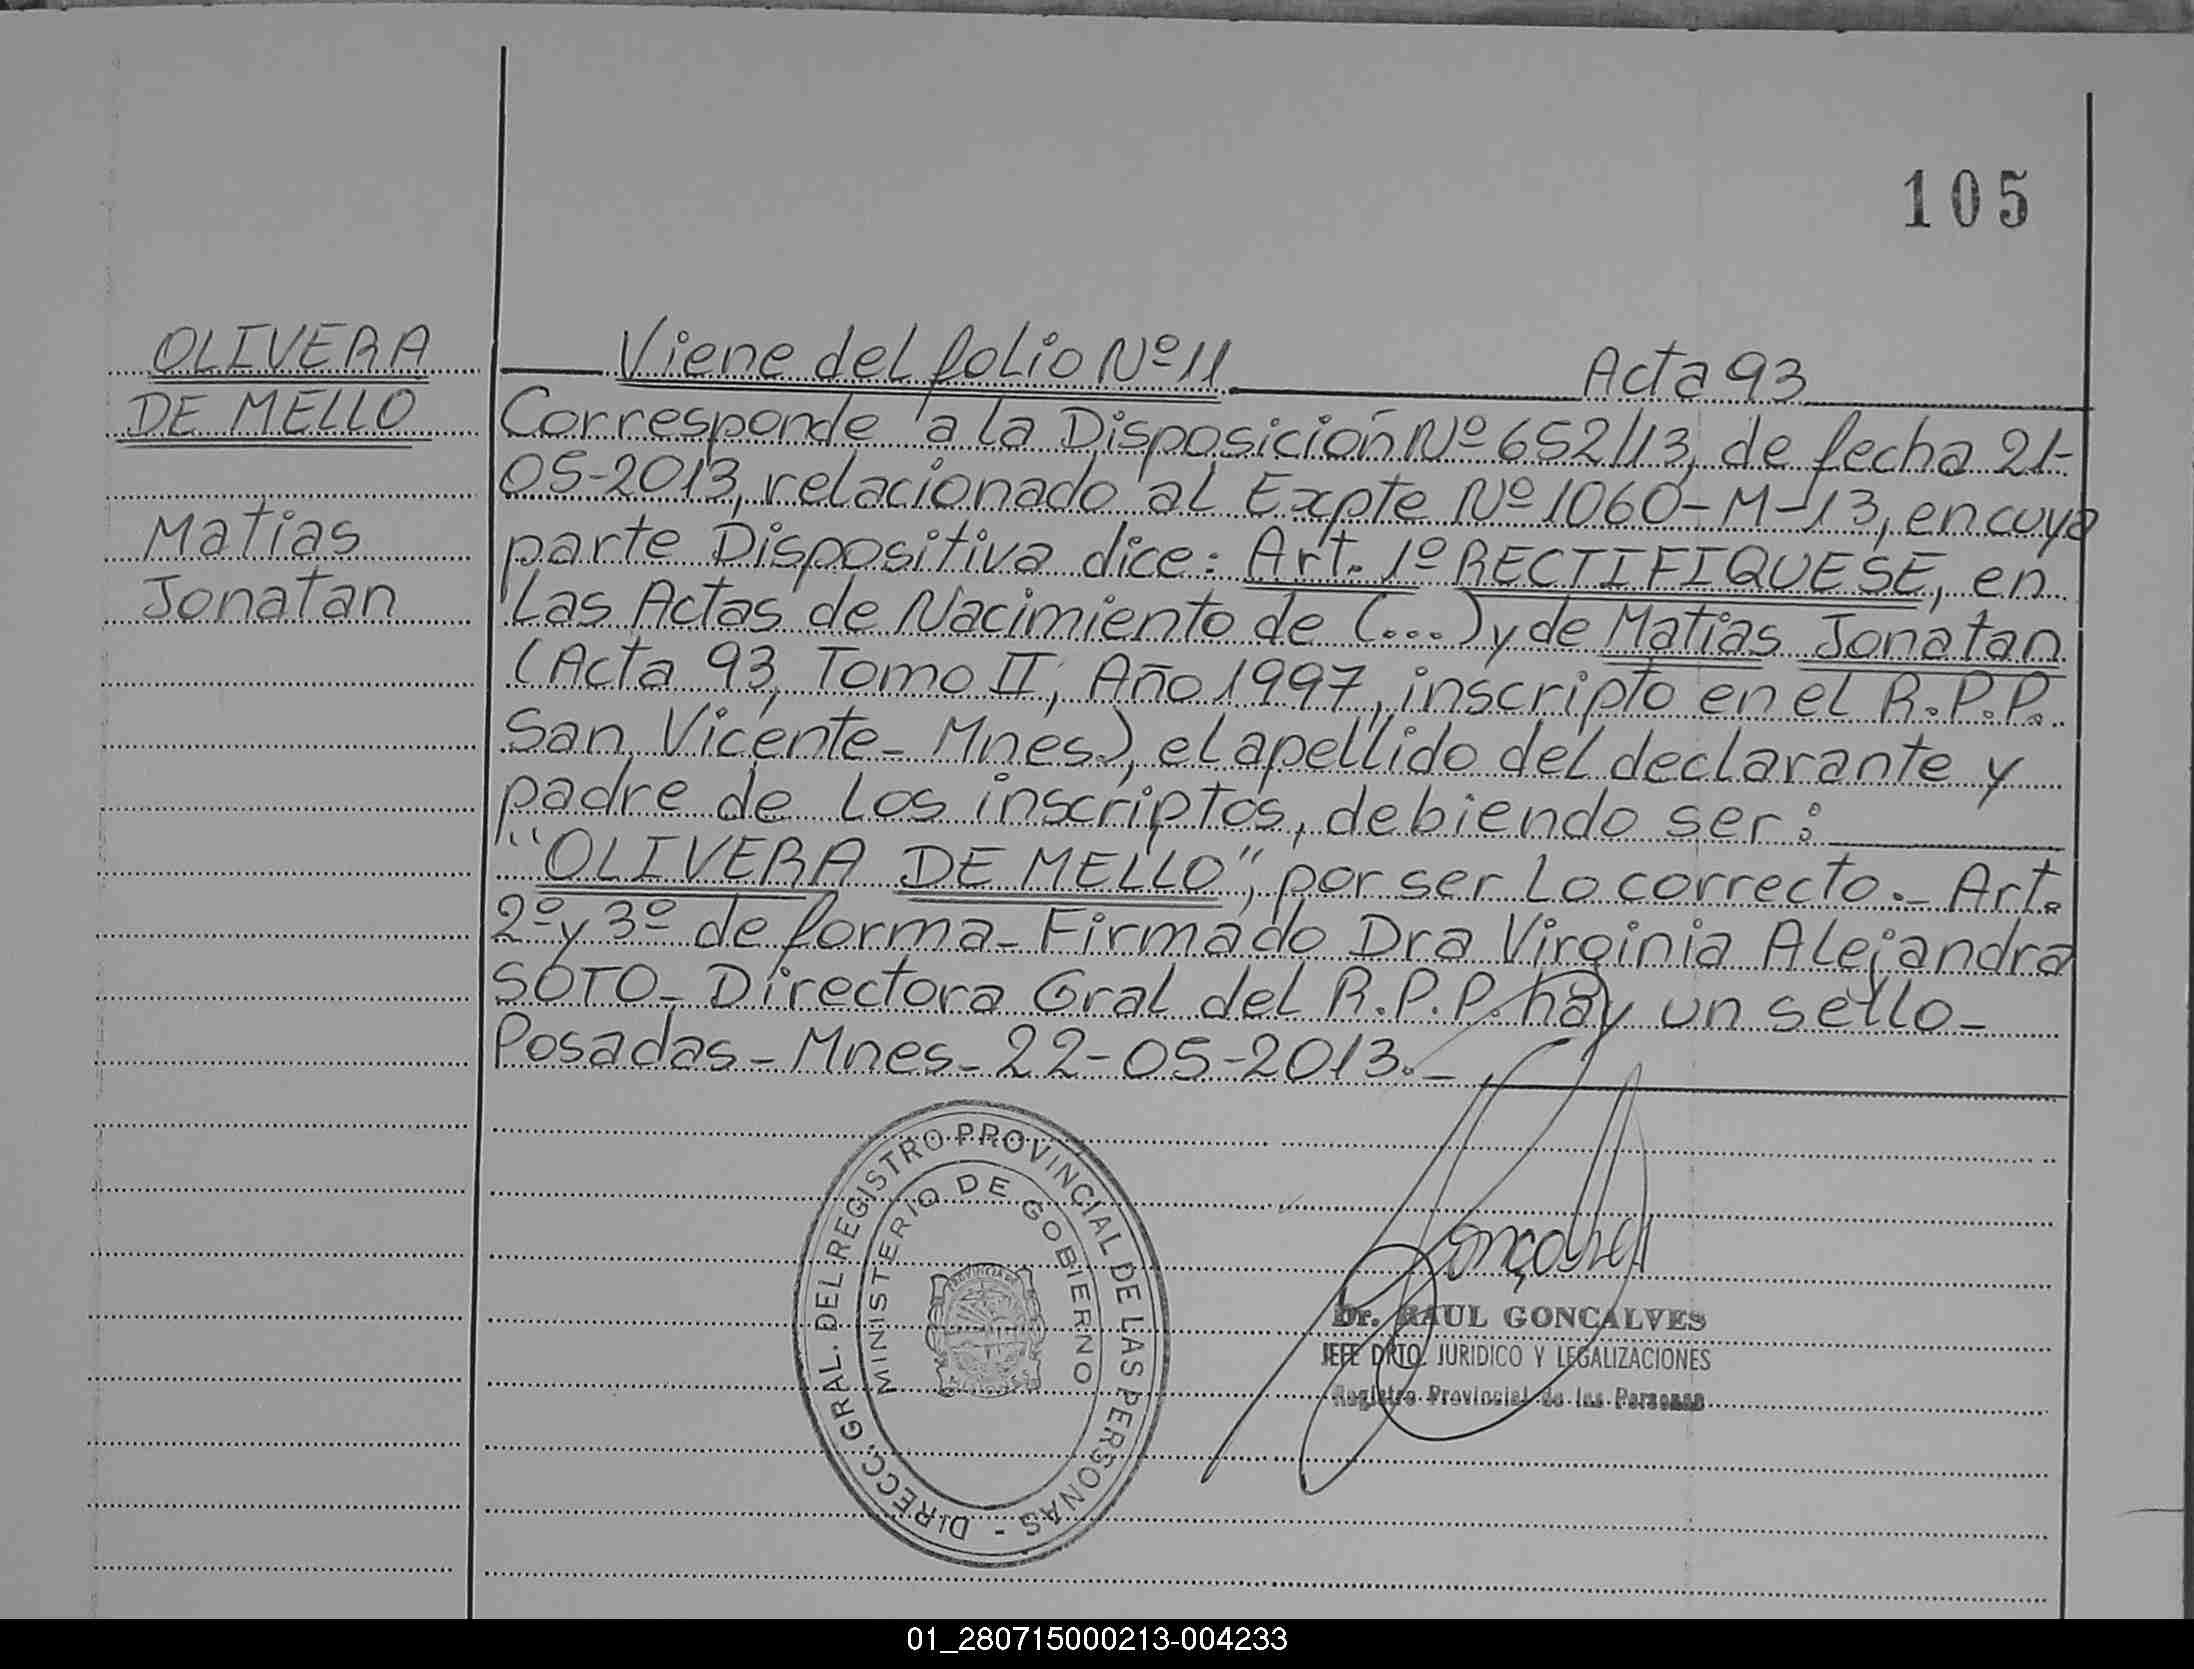 105
OLIVERA
DE MELLO
Matias
Jonatan
Viene del folio Nº 11 Acta 93
Corresponde a la Disposición Nº 652/13, de fecha 21-
05-2013, relacionado al Expte Nº 1060-M-13, en cuya
parte Dispositiva dice: Art. 1º RECTIFIQUESE, en
las Actas de Nacimiento de (...) y de Matias Jonatan
(Acta 93, Tomo II, Año 1997, inscripto en el R.P.P.
San Vicente- Mnes), el apellido del declarante y
padre de los inscriptos, debiendo ser:
"OLIVERA DE MELLO", por ser lo correcto.- Art.
2º y 3º de forma- Firmado Dra Virginia Alejandra
SOTO- Directora Gral del R.P.P. hay un sello-
Posadas- Mnes- 22-05-2013.-
DIRECC. GRAL. DEL REGISTRO PROVINCIAL DE LAS PERSONAS -
MINISTERIO DE GOBIERNO
PROVINCIA DE
MISIONES
Dr. RAUL GONCALVES
JEFE DPTO. JURIDICO Y LEGALIZACIONES
Registro Provincial de las Personas
01_280715000213-004233